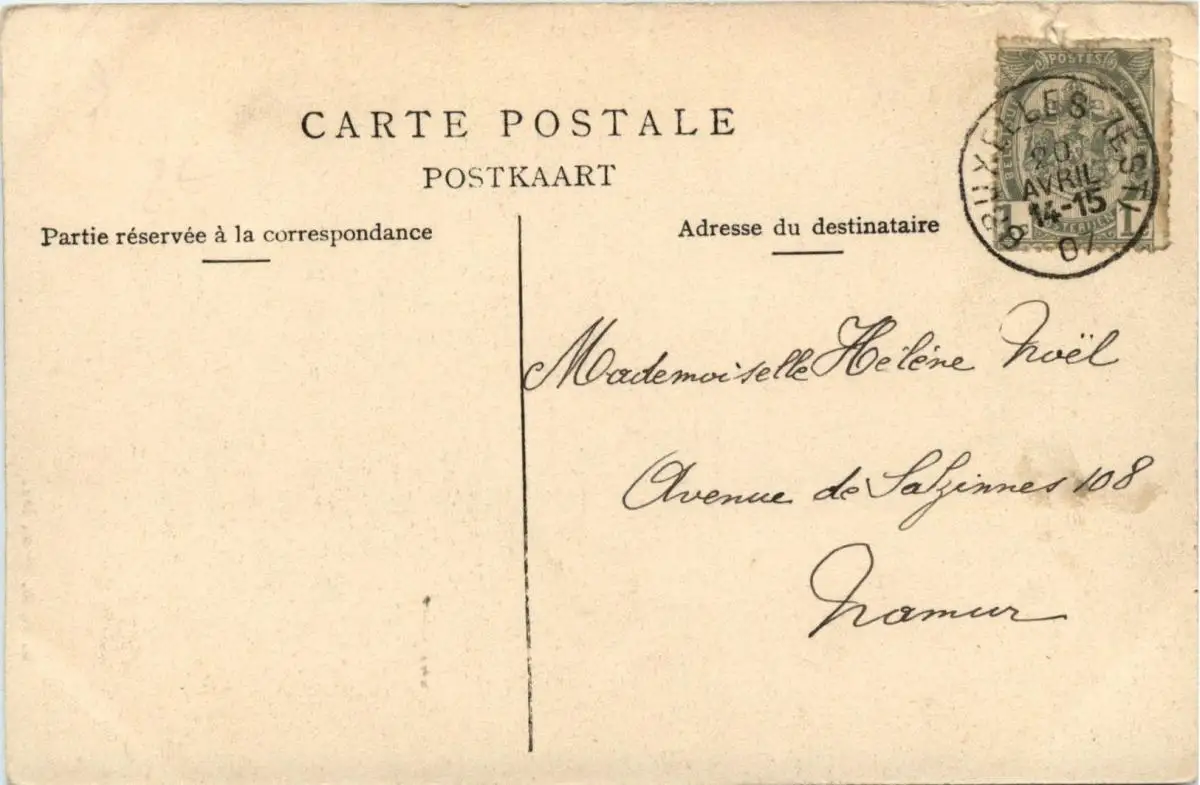 CARTE POSTALE
POSTKAART
Partie réservée à la correspondance
Adresse du destinataire
POSTES
BRUXELLES (EST)
20
AVRIL
14-15
07
1
Mademoiselle Hélène Noël
Avenue de Salzinnes 108
Namur